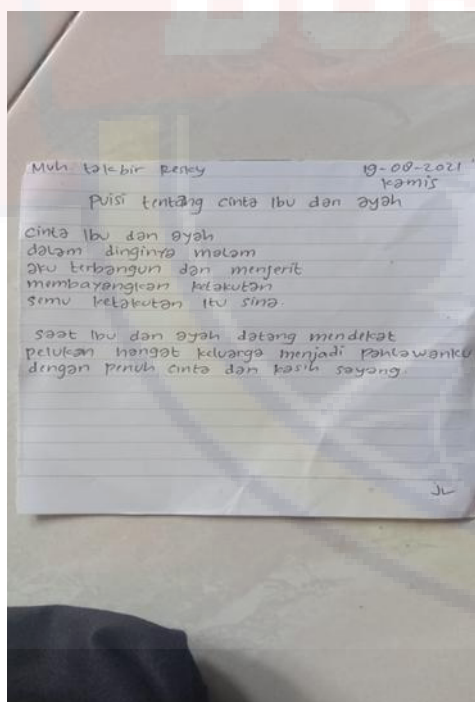 Muh. takbir Resky 19-08-2021
kamis
Puisi tentang cinta Ibu dan ayah
cinta Ibu dan ayah
dalam dinginya malam
aku terbangun dan menjerit
membayangkan ketakutan
semu ketakutan itu sina.
saat Ibu dan ayah datang mendekat
pelukan hangat keluarga menjadi pahlawanku
dengan penuh cinta dan kasih sayang.